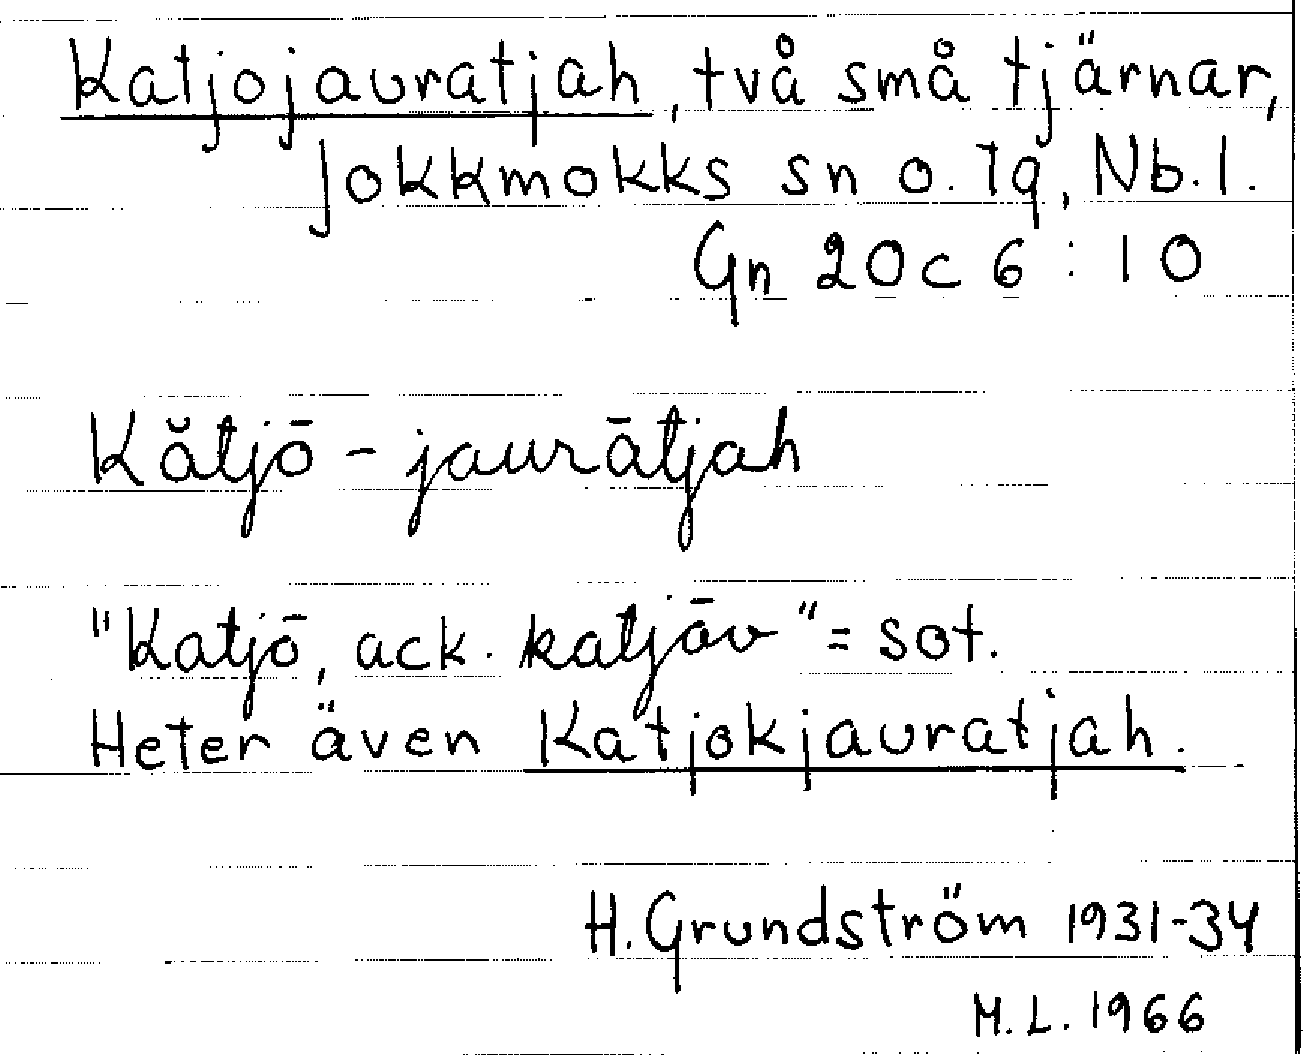 Katjojauratjah, två små tjärnar,
Jokkmokks sn o. lq, Nb.l.
Gn 20c 6:10
Kătjō-jaurātjah
"Katjō, ack. katjāv" = sot.
Heter även Katjokjauratjah.
H. Grundström 1931-34
M.L. 1966